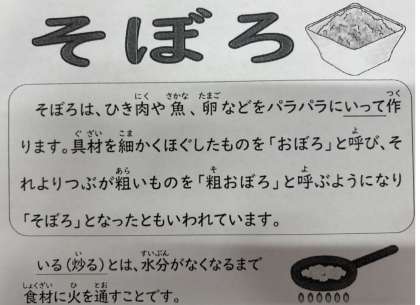 そぼろ
そぼろは、ひき肉や魚、卵などをパラパラにいって作
ります。具材を細かくほぐしたものを「おぼろ」と呼び、そ
れよりつぶが粗いものを「粗おぼろ」と呼ぶようになり
「そぼろ」となったともいわれています。
いる(炒る)とは、水分がなくなるまで
食材に火を通すことです。